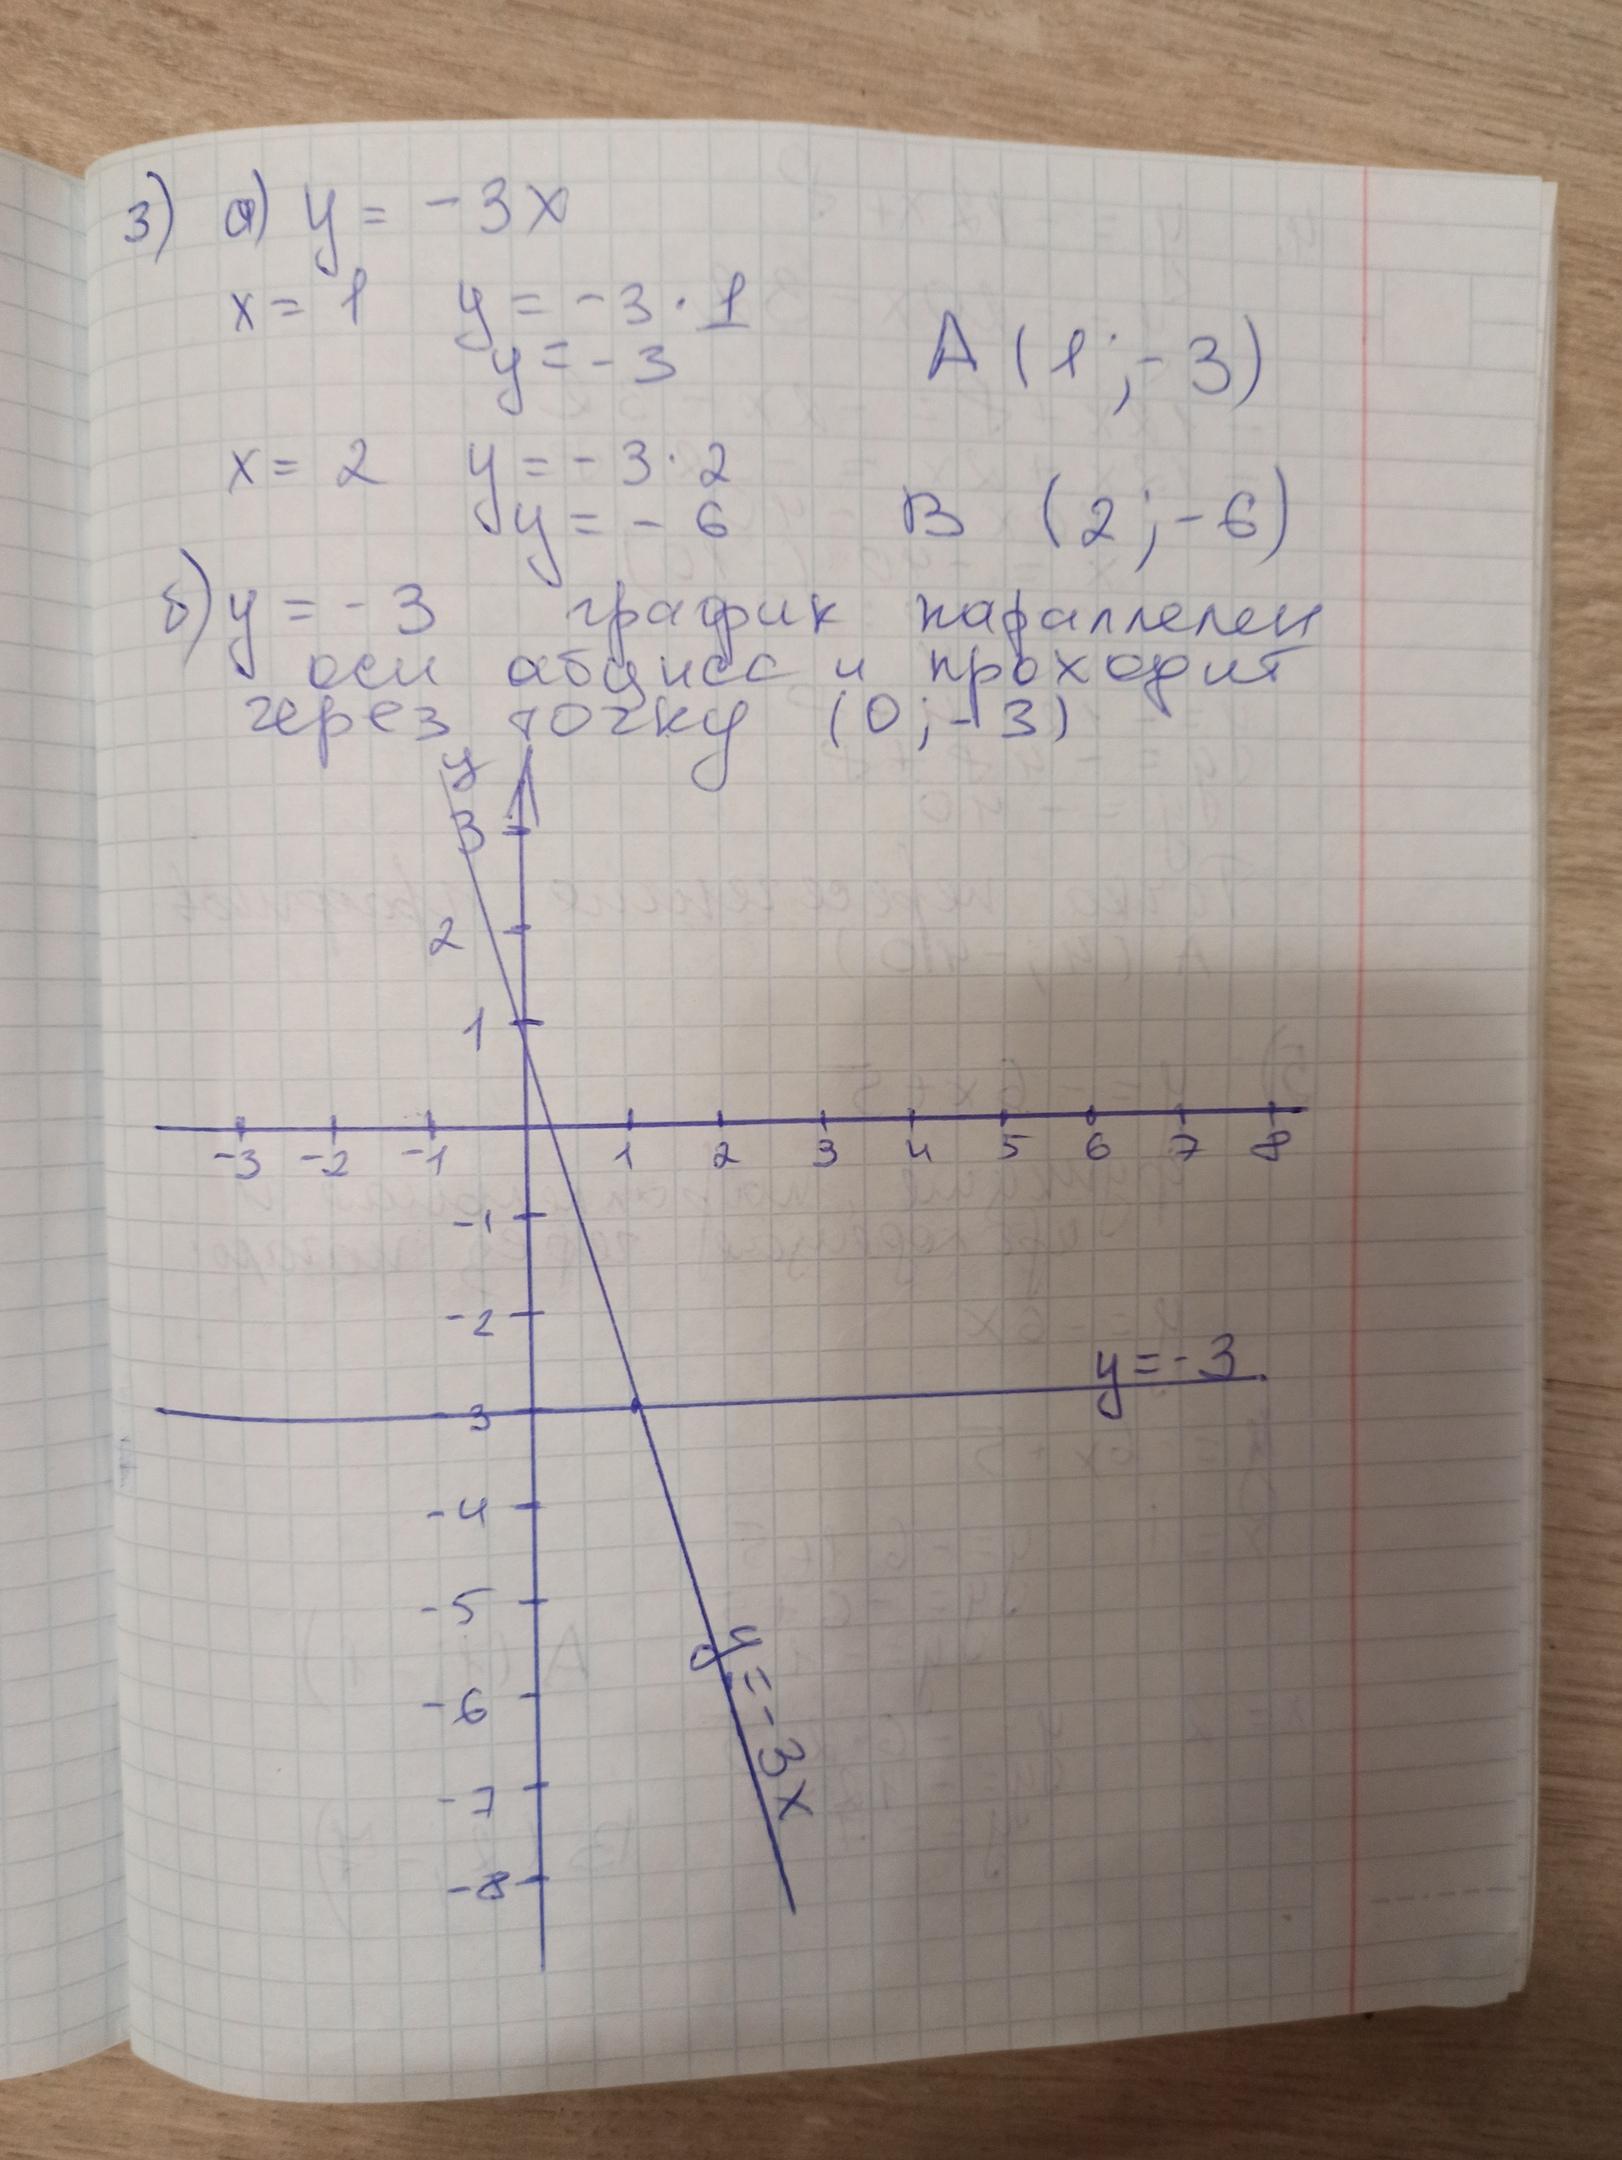 3) а) y = -3x
x = 1 y = -3 · 1
y = -3 A (1; -3)
x = 2 y = -3 · 2
y = -6 B (2; -6)
б) y = -3 график параллелен
оси абцисс и проходит
через точку (0; -3)
y
3
2
1
-3 -2 -1 1 2 3 4 5 6 7 8
-1
-2
y = -3
-3
-4
-5
-6
-7
-8
y = -3x